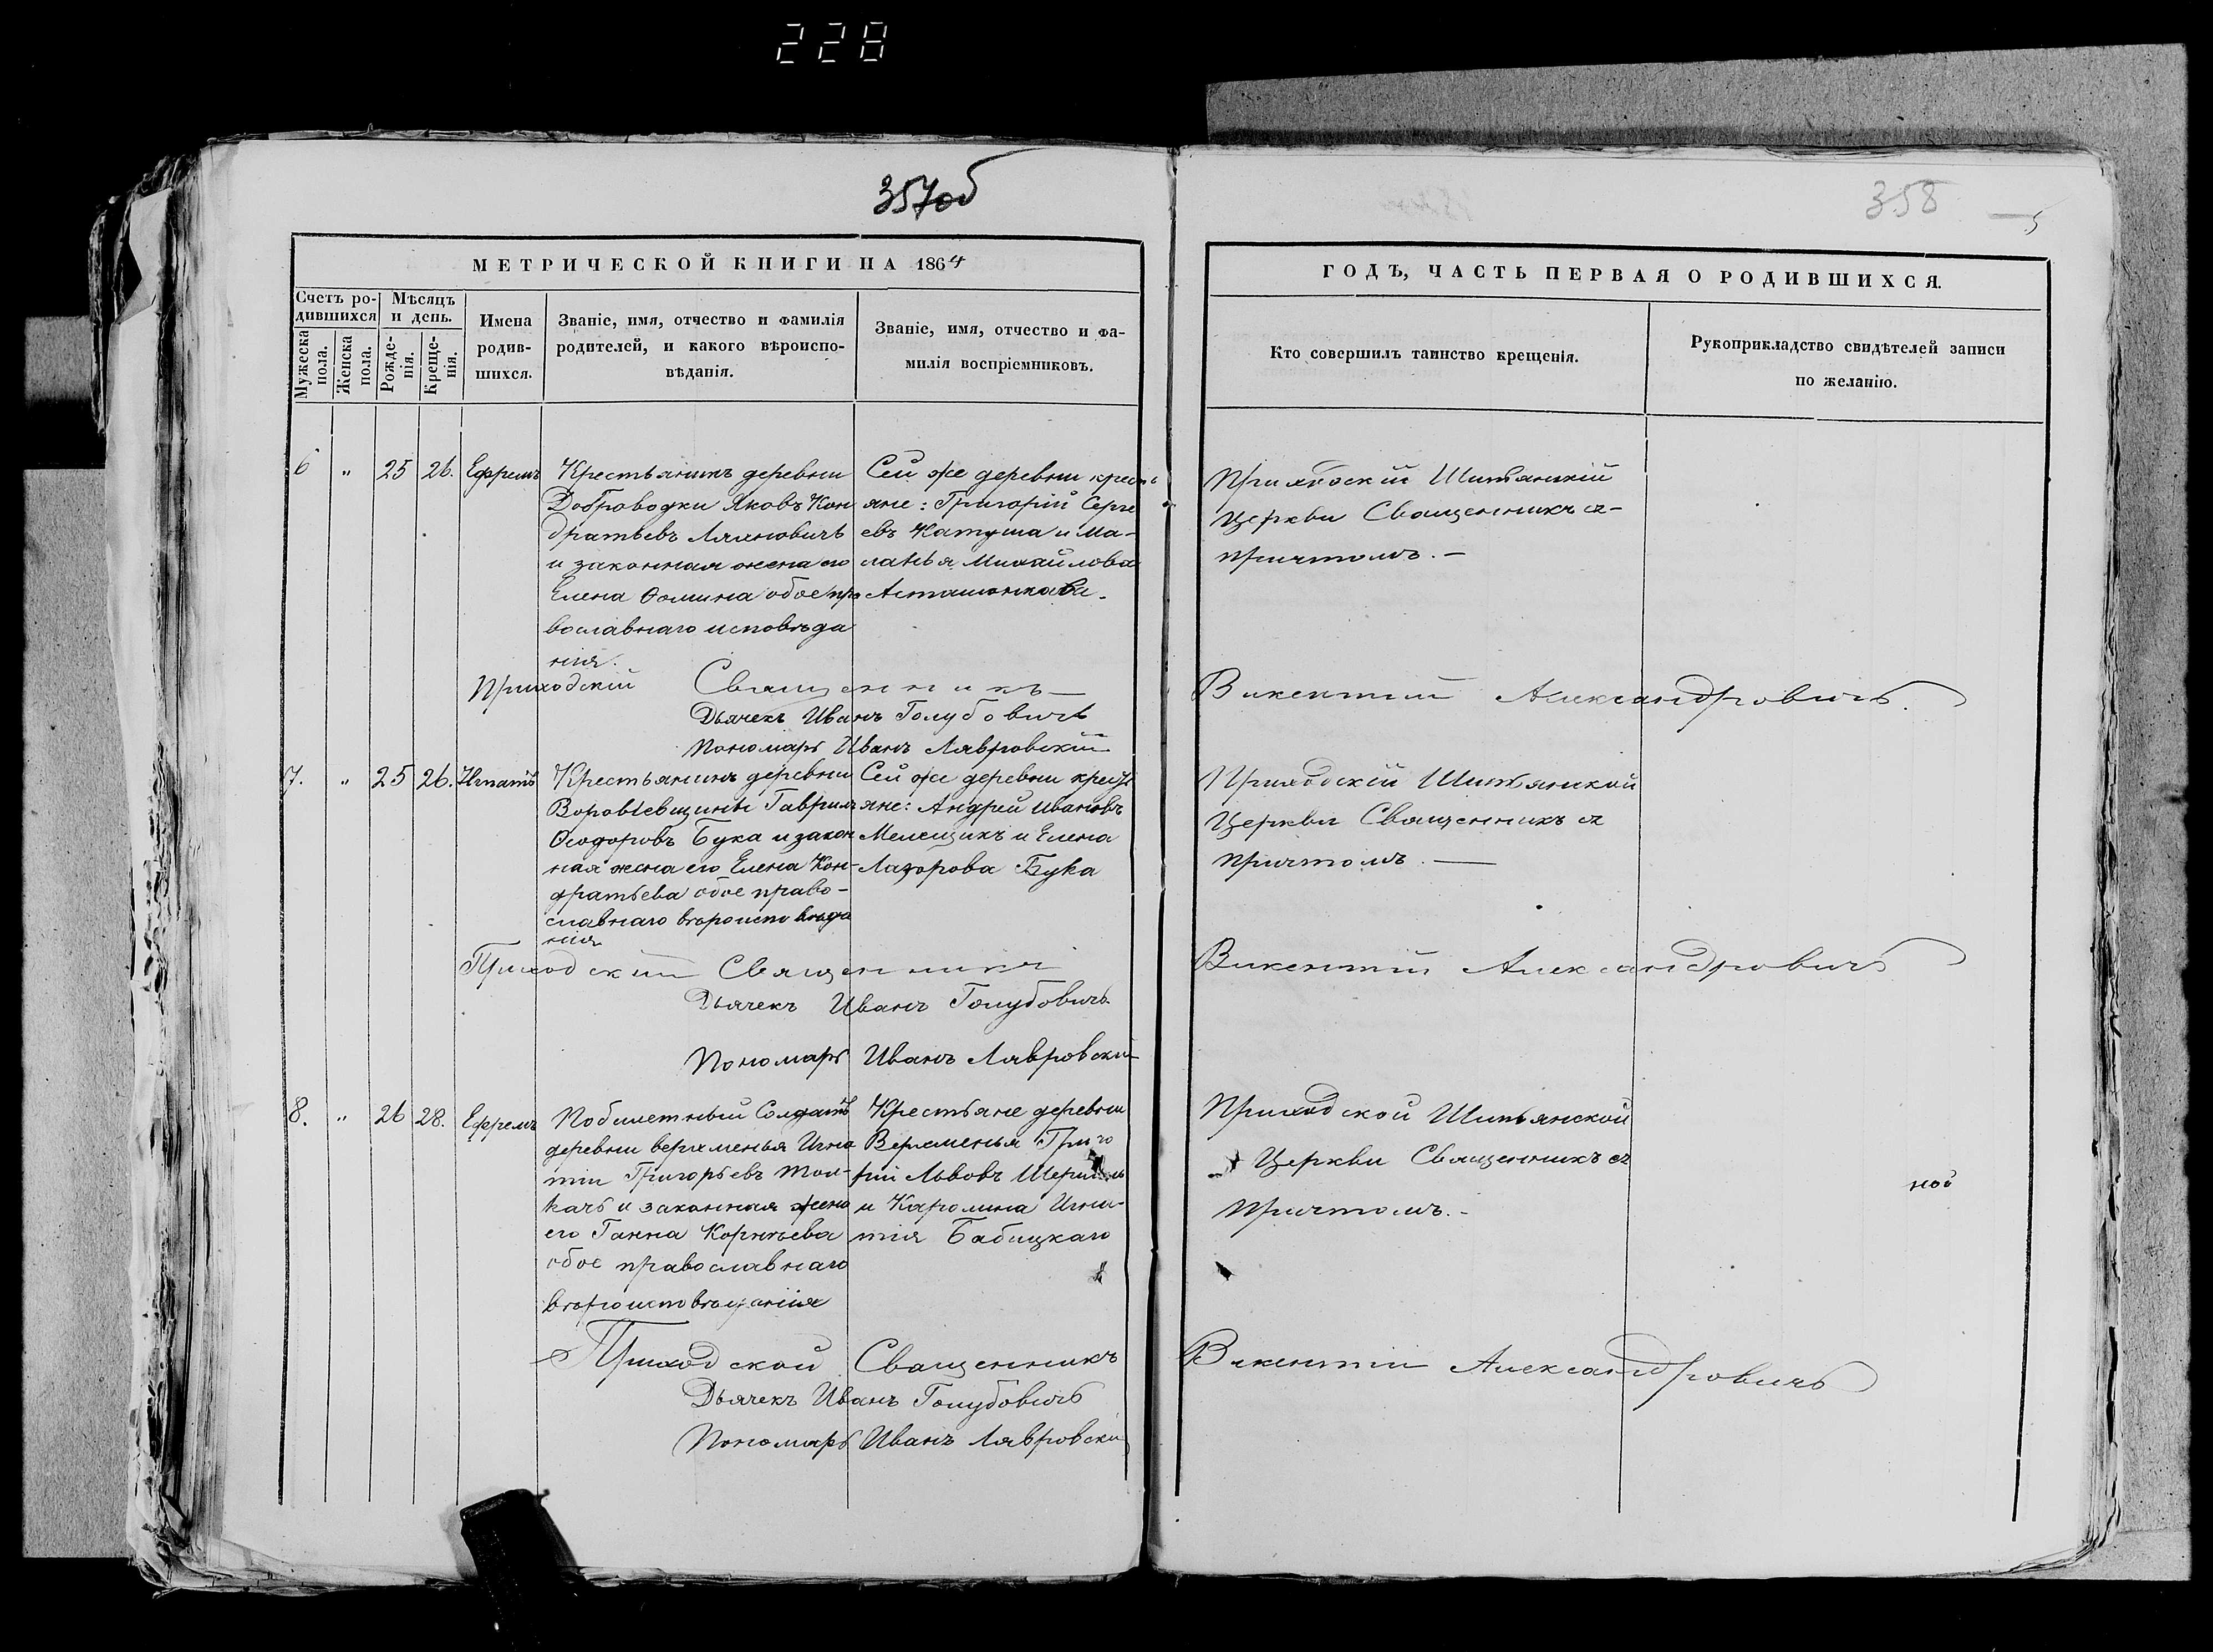 228
357об
358
МЕТРИЧЕСКОЙ КНИГИ НА 1864
ГОДЪ, ЧАСТЬ ПЕРВАЯ О РОДИВШИХСЯ.
Счетъ ро-
дившихся
Мужеска
пола.
Женска
пола.
Мѣсяцъ
и день.
Рожде-
нія.
Креще-
нія.
Имена
родив-
шихся.
Званіе, имя, отчество и фамилія
родителей, и какого вѣроиспо-
вѣданія.
Званіе, имя, отчество и фа-
милія воспріемниковъ.
Кто совершилъ таинство крещенія.
Рукоприкладство свидѣтелей записи
по желанію.
6 „ 25 26. Ефремъ
Крестьянинъ деревни
Доброводки Яковъ Кон
дратьевъ Ляхновичъ
и законная жена его
Елена Ѳомина обое пра
вославнаго исповѣда
нія.
Сей же деревни кресть
яне: Григорій Серге
евъ Катуша и Ма-
ланья Михайлова
Приходскій
Церкви Священникъ съ
причтомъ. —
Приходскій Священникъ — Викентій Александровичъ.
Дьячекъ Иванъ Голубовичъ
Пономарь Иванъ Лявровскій
7. „ 25 26. Игнатъ
Крестьянинъ деревни
Воровьевщины Гаврилъ
Ѳеодоровъ Бука и закон
ная жена его Елена Кон-
дратьева обое право-
славнаго вѣроисповѣда
нія
Сей же деревни кресть
яне: Андрей Ивановъ
Мелещикъ и Елена
Лазорова Бука
Приходскій
Церкви Священникъ съ
причтомъ. —
Приходскій Священникъ Викентій Александровичъ
Дьячекъ Иванъ Голубовичъ
Пономарь Иванъ Лявровскій
8. „ 26 28. Ефремъ
Побилетный Солдатъ
деревни Верхменья Игна
тій Григорьевъ Тол-
качъ и законная жена
его Ганна Корнѣева
обое православнаго
вѣроисповѣданія
Крестьяне деревни
Верхменья Григо
рій Львовъ
и Каролина Игна-
тія Бабицкаго
Приходской Шипянской
Церкви Священникъ съ
причтомъ. -
Приходской Священникъ Викентій Александровичъ
Дьячекъ Иванъ Голубовичъ
Пономарь Иванъ Лявровскій